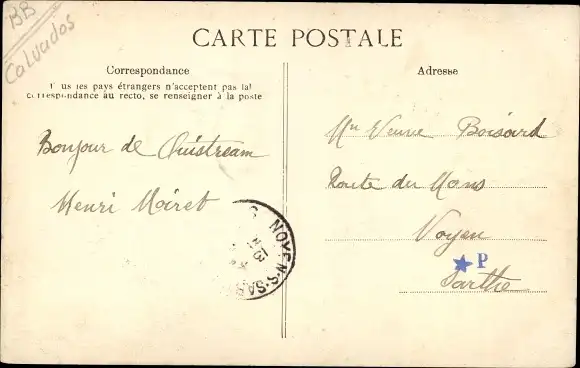 BB
Calvados
CARTE POSTALE
Correspondance
Tous les pays étrangers n'acceptent pas la
correspondance au recto, se renseigner à la poste
Bonjour de Ouistream
Henri Moiret
Adresse
Veuve Boisard
Route du Mans
Noyen
Sarthe
P
NOYEN-S-SAR
13